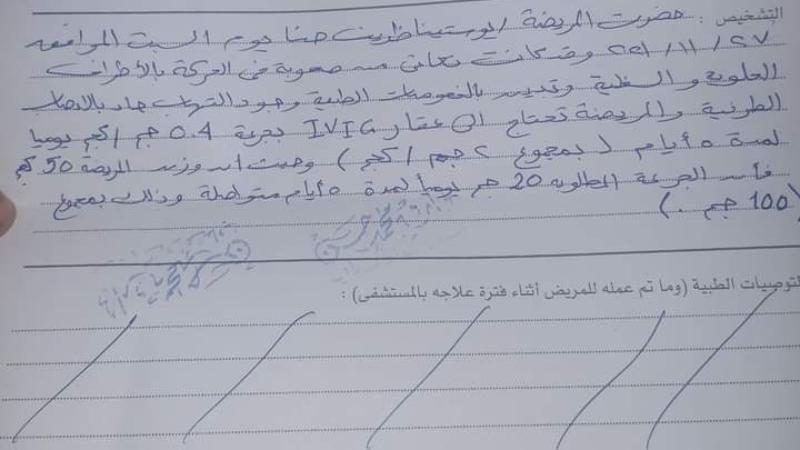 التشخيص : حضرت المريضة / يوستينا ظريف حنا يوم السبت الموافق
٢٧ / ١١ / ٢٠٢١ وقد كانت تعاني من صعوبة في الحركة بالأطراف
العلوية والسفلية وتبين بالفحوصات الطبية وجود التهاب حاد بالأعصاب
الطرفية والمريضة تحتاج الى عقار IVIG بجرعة 0.4 جم / كجم يوميا
لمدة ٥ أيام ( بمجموع ٢ جم / كجم ) وحيث أن وزن المريضة 50 كجم
فأن الجرعة المطلوبه 20 جم يومياً لمدة ٥ أيام متواصلة وذلك بمجموع
(100 جم .)
التوصيات الطبية (وما تم عمله للمريض أثناء فترة علاجه بالمستشفى) :